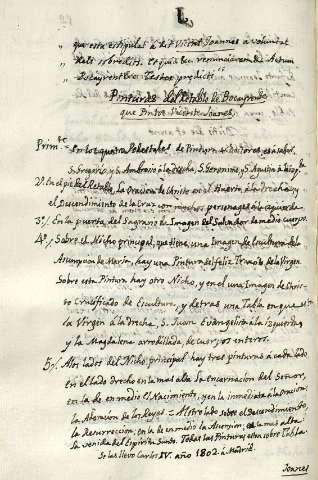 L.
" que esta estipulat a dit Vicent Joannes a voluntat
" dels sobredits. Et quia hec renunciavem &c Actum
" Bocayrent &c Testes predicti
Pinturas del Retablo de Bocayrente
que Pinto Vicente Juanes
Prim.te En los quatro Pedestales de Pintura 4 Doctores, es a saber
S. Gregorio, y S. Ambrosio a la drecha, S. Geronimo, S. Agustin a la izq.da
2º. En el pie del Retablo, la Oracion de Christo en el Huerto, a la drecha, y
el Descendimiento de la Cruz con muchos personages a la izquierda
3º. En la puerta del Sagrario la Imagen del Salvador de medio cuerpo.
4º. Sobre el Nicho principal, que tiene una Imagen de Escultura de la
Asumpcion de Maria, hay una Pintura del feliz Transito de la Virgen
Sobre esta Pintura hay otro Nicho, y en el una Imagen de Chris-
to Crucificado de Escultura, y detras una Tabla en que está
la Virgen á la drecha, S. Juan Evangelista a la izquierda
y la Magdalena arrodillada de cuerpos enteros.
5º. A los lados del Nicho principal hay tres pinturas a cada lado
en el lado drecho en la mas alta la Encarnacion del Señor,
en la de en medio el Nacimiento, y en la inmediata a la Oracion
la Adoracion de los Reyes. Al otro lado sobre el Decendimiento,
la Resurreccion; en la de en medio la Ascension; en la mas alta
la venida del Espiritu Santo. Todas las Pinturas estan sobre Tabla.
Se las llevo Carlos IV. año 1802 á Madrid.
Joanes